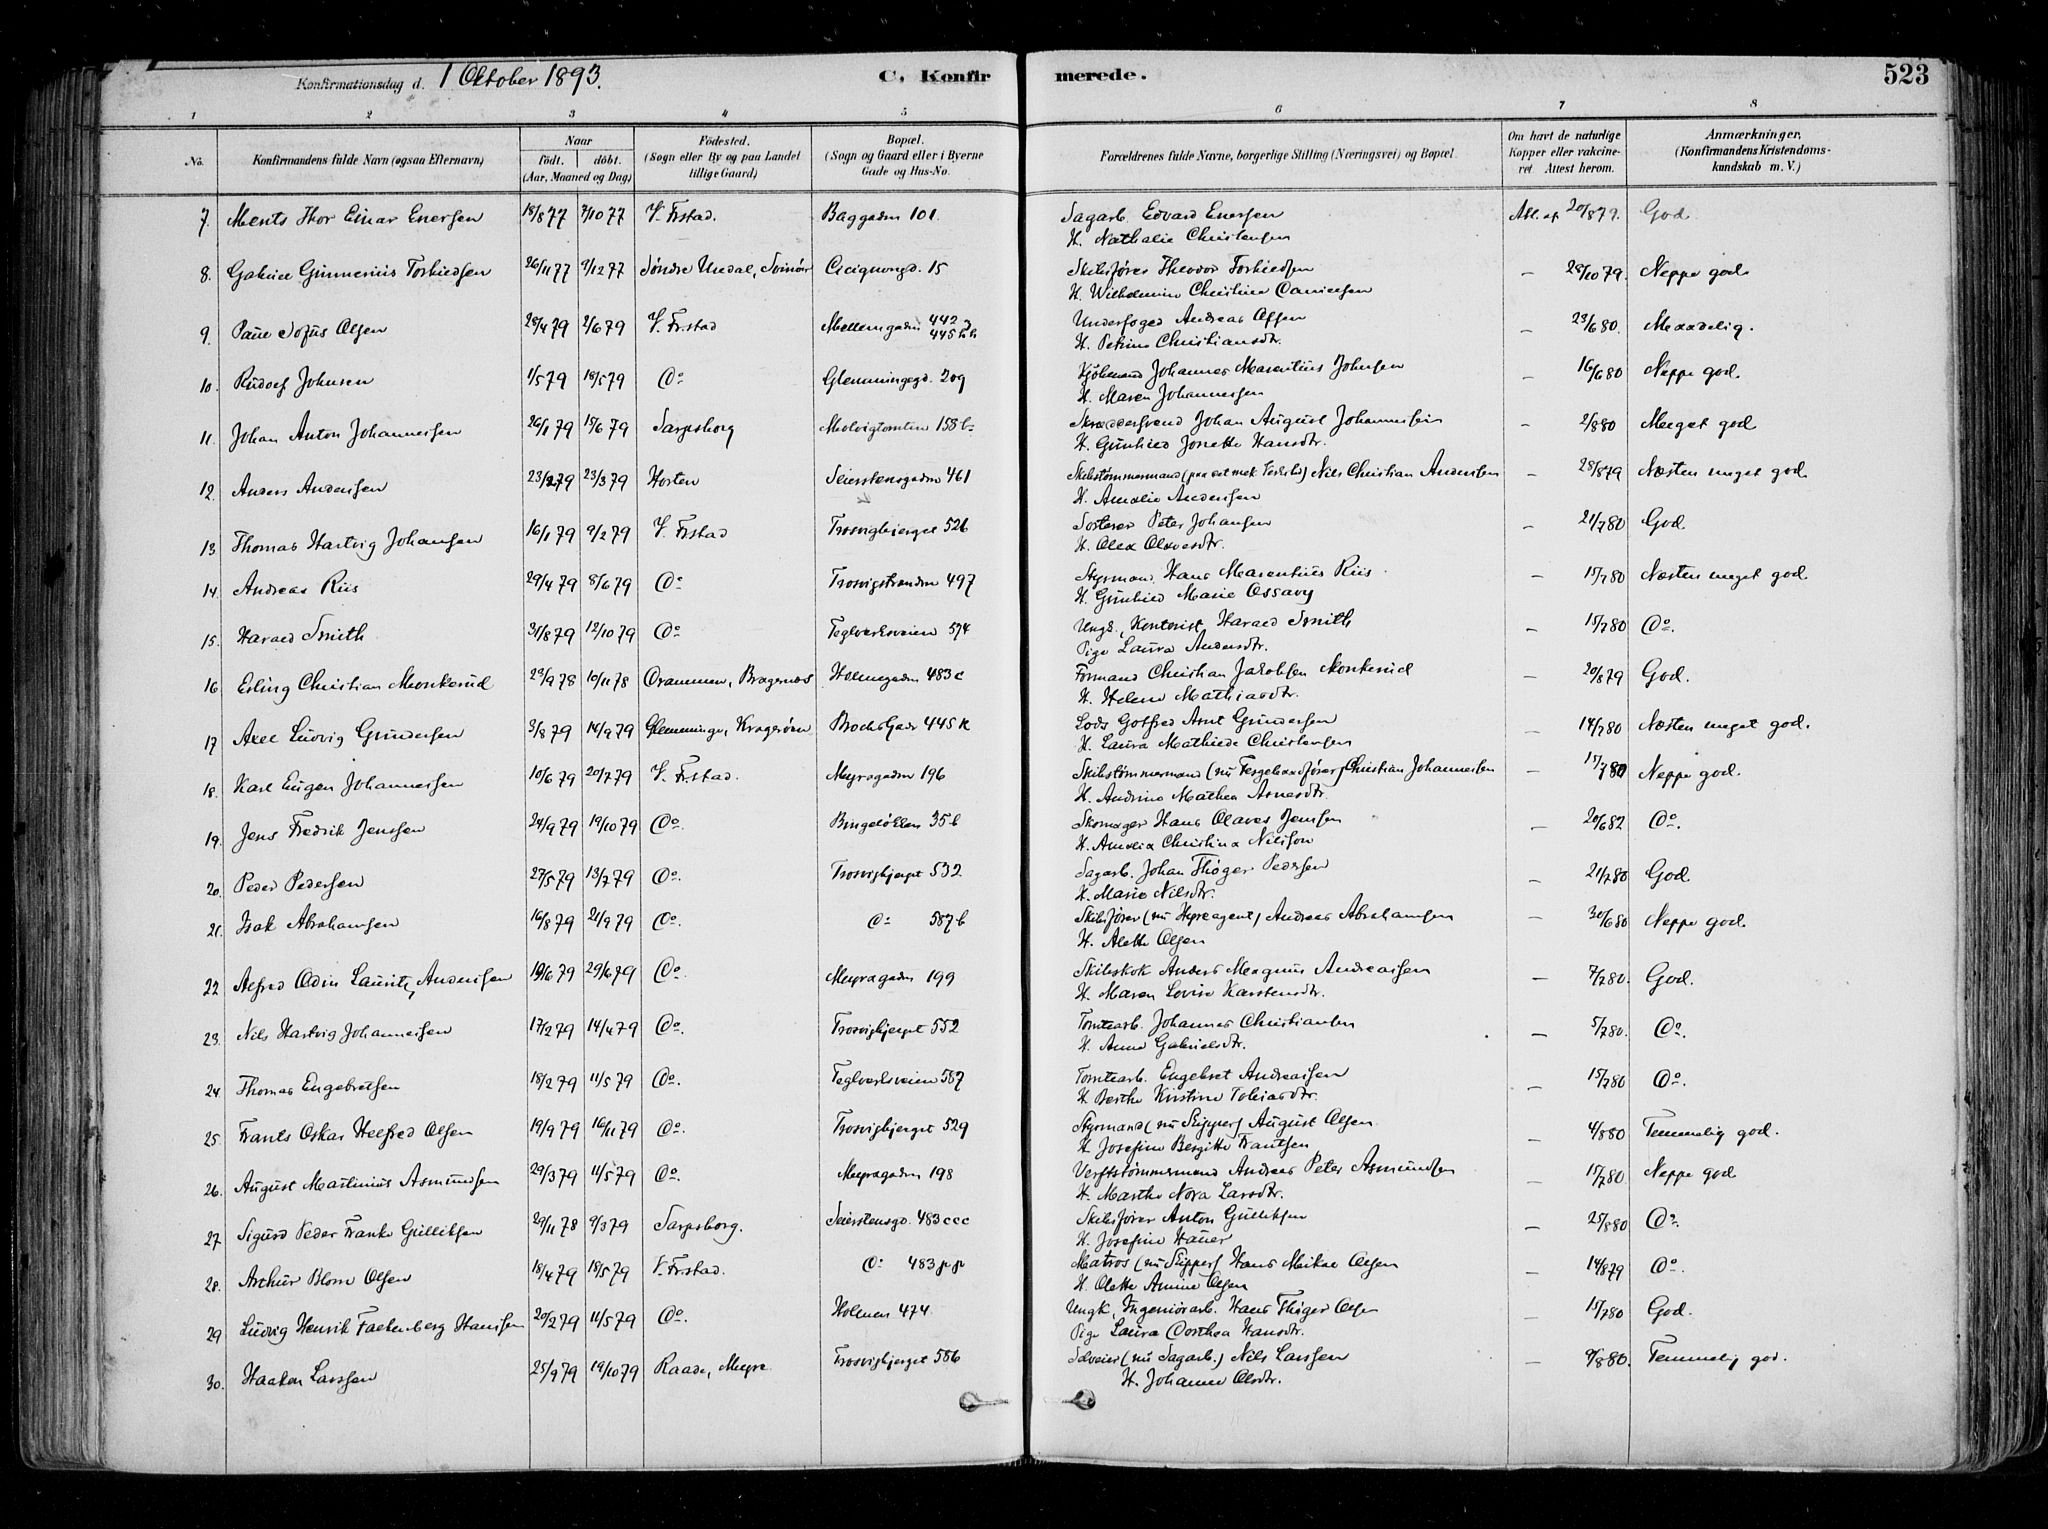 Konfirmationsdag d. 1 Oktober 1893. C. Konfirmerede. 523
1 2 3 4 5 6 7 8
No. Konfirmandens fulde Navn (ogsaa Efternavn) Naar født. døbt. (Aar, Maaned og Dag) Fødested. (Sogn eller By og paa Landet tillige Gaard) Bopæl. (Sogn og Gaard eller i Byerne Gade og Hus-No. Forældrenes fulde Navne, borgerlige Stilling (Næringsvei) og Bopæl. Om havt de naturlige Kopper eller vakcineret. Attest herom. Anmærkninger. (Konfirmandens Kristendomskundskab m. V.)
7. Ments Thor Einar Enersen 18/8 77 7/10 77 V. Frstad. Baggaden 101 Sagarb. Edvard Enersen Att. af 20/8 79. God
H. Nathalie Christensen
8. Gabriel Gunnerius Torkildsen 26/11 77 9/12 77 Søndre Undal, Svinør Cicignongd. 15 Skibsfører Theodor Torkildsen – 28/10 79. Neppe god
H. Wilhelmine Christine Danielsen
9. Paul Sofus Olsen 28/4 79 2/6 79 V. Frstad Mellemgaden 442 445 hh Underfoged Andreas Olsen – 23/6 80. Maadelig.
H. Petrine Christiansdtr.
10. Rudolf Johnsen 1/5 79 18/5 79 Do Glemmingegd. 209 Kjøbmand Johannes Marentius Johnsen – 16/6 80 Neppe god
H. Maren Johannesen
11. Johan Anton Johannessen 26/1 79 15/6 79 Sarpsborg Molvigtomten 158 b Skræddersvend Johan August Johannessen – 2/8 80 Meget god
H. Gunhild Jonette Hansdtr.
12. Anders Andersen 23/2 79 23/3 79 Horten Seierstensgaden 461 Skibstømmermand (paa et mek. Verksted) Nils Christian Andersen – 28/8 79 Næsten meget god
H. Amalie Andersen
13 Thomas Hartvig Johansen 16/1 79 9/2 79 V. Frstad Trosvigbjerget 526 Sorterer Peter Johansen – 21/7 80 God.
H. Olea Olavesdtr.
14. Andreas Riis 29/4 79 8/6 79 Do Trosvigstranden 497 Styrmand Hans Marentius Riis – 15/7 80 Næsten meget god
H. Gunhild Marie Ossavy
15. Harald Smith 31/8 79 12/10 79 Do Teglverksveien 574 Ungk. Kontorist Harald Smith – 15/7 80 Do.
Pige Laura Andersdtr.
16 Erling Christian Monkerud 23/9 78 10/11 78 Drammen, Bragernæs Holmegaden 483 c Formand Christian Jakobsen Monkerud – 20/8 79 God.
H. Helene Mathiasdtr.
17 Axel Ludvig Gundersen 3/8 79 14/9 79 Glemminge, Kragerøen Brochs Gade 445 k Lods Gotfred Arnt Gundersen – 14/7 80 Næsten meget god.
H. Laura Mathilde Christensen
18. Karl Eugen Johannessen 10/6 79 20/7 79 V. Frstad. Myragaden 196 Skibstømmermand (nu Fergebaadfører) Christian Johannessen – 15/7 80 Neppe god.
H. Andrine Mathea Arnesdtr.
19. Jens Fredrik Jenssen 24/9 79 19/10 79 Do. Bingeløkken 35 b Skomager Hans Olaves Jenssen – 20/6 82 Do.
H. Amalia Christina Nilsson
20. Peder Pedersen 27/5 79 13/7 79 Do. Trosvigbjerget 532 Sagarb. Johan Thøger Pedersen – 21/7 80 God
H. Marie Nilsdtr.
21. Isak Abrahamsen 16/8 79 21/9 79 Do. Do 587 b Skibsfører (nu Hyreagent) Andreas Abrahamsen – 30/6 80 Neppe god.
H. Alette Olsen
22 Alfred Odin Lauritz Andersen 19/6 79 29/6 79 Do. Myragaden 199 Skibskok Anders Magnus Andreassen – 7/7 80. God.
H. Maren Lovise Karstensdtr.
23. Nils Hartvig Johannessen 17/2 79 14/4 79 Do. Trosvigbjerget 552 Tomtearb. Johannes Christiansen – 5/7 80. Do.
H. Anne Gabrielsdtr.
24. Thomas Engebretsen 18/2 79 11/5 79 Do. Teglverksveien 587 Tomtearb. Engebret Andreassen – 15/7 80 Do.
H. Berthe Kirstine Tobiasdtr.
25. Frants Oskar Helfred Olsen 19/9 79 16/11 79 Do. Trosvigbjerget 529 Styrmand (nu Skipper) August Olsen – 4/8 80 Temmelig god.
H. Josefine Bergitte Frantsen
26. August Martinius Asmundsen 29/3 79 11/5 79 Do. Myragaden 198 Verftstømmermand Andreas Peter Asmundsen – 15/7 80 Neppe god
H. Marthe Nora Larsdtr.
27. Sigurd Peder Franke Gulliksen 29/11 78 9/3 79 Sarpsborg. Seierstensgd. 483 ccc Skibsfører Anton Gulliksen – 25/8 80 Do.
H. Josefine Hauer
28. Arthur Blom Olsen 18/4 79 18/5 79 V. Frstad. Do 483 pp Matros (nu Skipper) Hans Mikal Olsen – 14/8 79 Do.
H. Olette Amine Olsen
29 Ludvig Henrik Falkenberg Hanssen 20/2 79 11/5 79 Do. Holmen 474. Ungk., Ingeniørarb. Hans Thøger Olsen – 15/7 80 God.
Pige Laura Dorthea Hansdtr.
30. Haaken Larssen 25/9 79 19/10 79 Raade, Myre Trosvigbjerget 586 Selveier (nu Sagarb.) Nils Larssen – 9/8 80. Temmelig god.
H. Johanne Olsdtr.